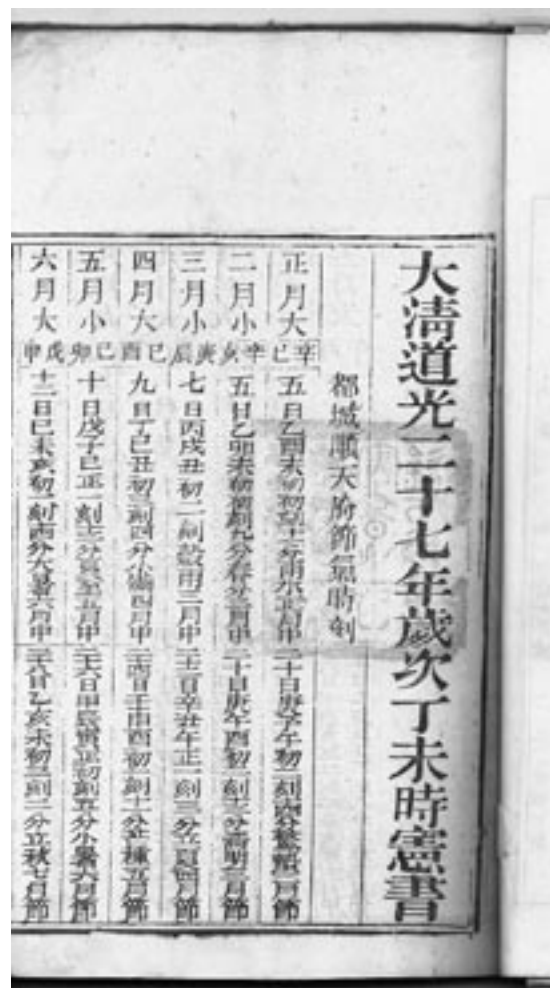 大清道光二十七年歲次丁未時憲書
都城順天府節氣時刻
正月大 辛巳 五日乙酉未初初刻十三分雨水正月中 二十日庚子午初一刻四分驚蟄二月節
二月小 辛亥 五日乙卯未初初刻九分春分二月中 二十日庚午酉初一刻十三分清明三月節
三月小 庚辰 七日丙戌丑初二刻穀雨三月中 二十二日辛丑午正一刻三分立夏四月節
四月大 己酉 九日丁巳丑初三刻四分小滿四月中 二十四日壬申酉初一刻十一分芒種五月節
五月小 己卯 十日戊子巳正一刻十三分夏至五月中 二十六日甲辰寅正初刻五分小暑六月節
六月大 戊申 十二日己未亥初一刻四分大暑六月中 二十八日乙亥未初二刻二分立秋七月節